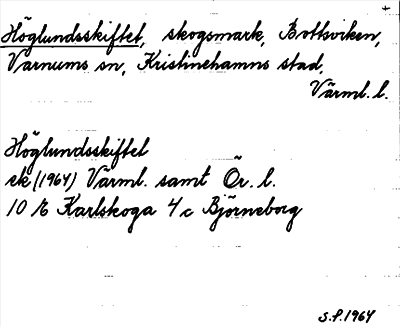 Höglundsskiftet, skogsmark, Bottsviken,
Varnums sn, Kristinehamns stad,
Värml. l.
Höglundsskiftet
ek (1964) Värml. samt Ör. l.
10 E Karlskoga 4c Björneborg
S.P. 1964